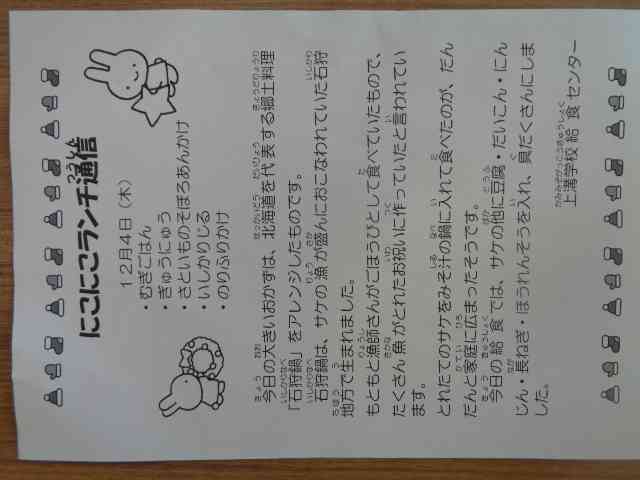 にこにこランチ通信
つうしん
12月4日（木）
・むぎごはん
・ぎゅうにゅう
・さといものそぼろあんかけ
・いしかりじる
・のりふりかけ
今日の大きいおかずは、北海道を代表する郷土料理
「石狩鍋」をアレンジしたものです。
石狩鍋は、サケの漁が盛んにおこなわれていた石狩
地方で生まれました。
もともと漁師さんがごほうびとして食べていたもので、
たくさん魚がとれたお祝いに作っていたと言われてい
ます。
とれたてのサケをみそ汁の鍋に入れて食べたのが、だん
だんと家庭に広まったそうです。
今日の給食では、サケの他に豆腐・だいこん・にん
じん・長ねぎ・ほうれんそうを入れ、具だくさんにしま
した。
上溝学校給食センター